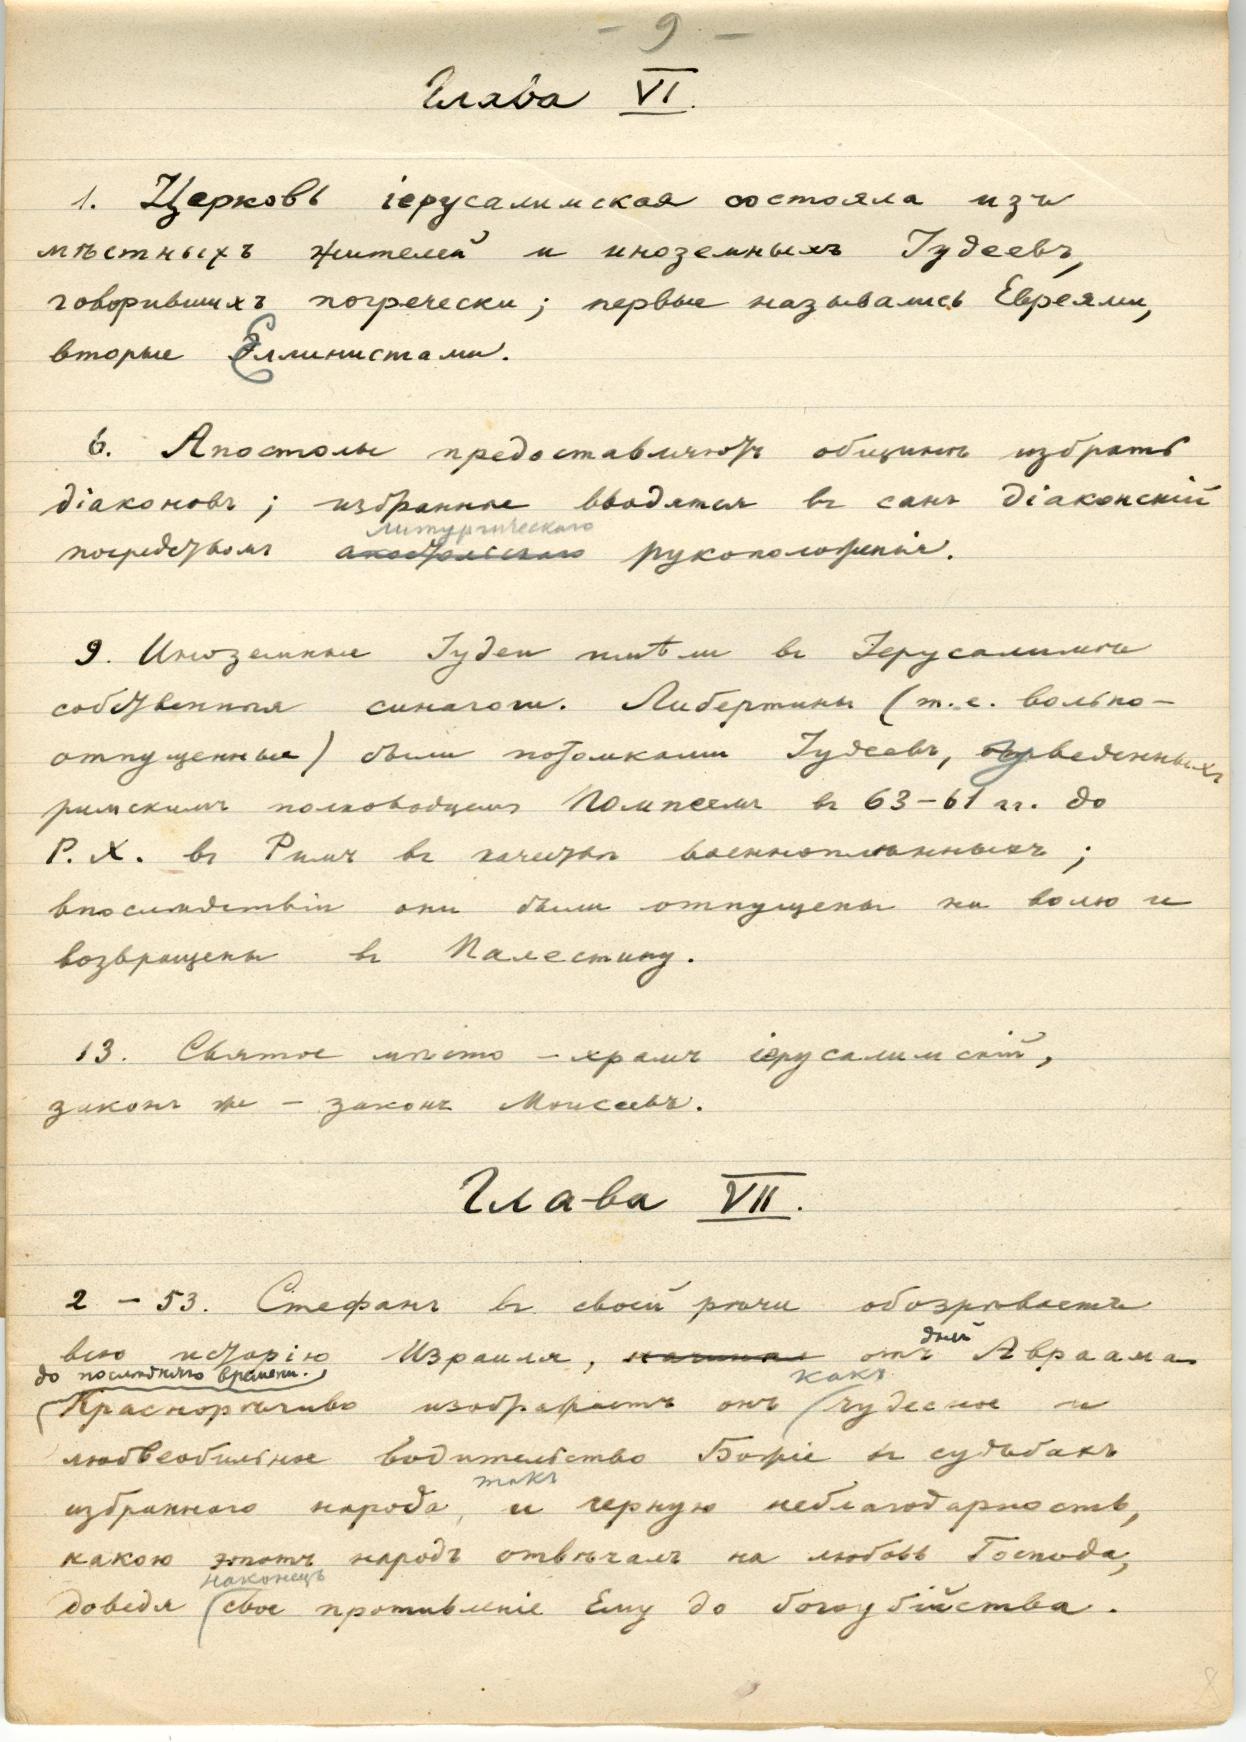 - 9 -
Глава VI.
1. Церковь іерусалимская состояла изъ
мѣстныхъ жителей и иноземныхъ Іудеевъ,
говорившихъ погречески; первые назывались Евреями,
вторые Еллинистами.
6. Апостолы предоставляютъ общинѣ избрать
діаконовъ; избранные вводятся въ санъ діаконскій
литургическаго
посредствомъ апостольскаго рукоположенія.
9. Иноземные Іудеи имѣли въ Іерусалимѣ
собственныя синагоги. Либертины (т.е. вольно-
отпущенные) были потомками Іудеевъ, отведенныхъ
римскимъ полководцемъ Помпеемъ въ 63-61 гг. до
Р. Х. въ Римъ въ качествѣ военноплѣнныхъ;
впослѣдствіи они были отпущены на волю и
возвращены въ Палестину.
13. Святое мѣсто - храмъ іерусалимскій,
законъ же - законъ Моисеевъ.
Глава VII.
2 - 53. Стефанъ въ своей рѣчи обозрѣваетъ
дней
всю исторію Израиля, начиная отъ Авраама
до послѣдняго времени. какъ
Краснорѣчиво изображаетъ онъ чудесное и
любвеобильное водительство Божіе въ судьбахъ
такъ
избраннаго народа, и черную неблагодарность,
какою этотъ народъ отвѣчалъ на любовь Господа,
наконецъ
доведя свое противленіе Ему до богоубійства.
8